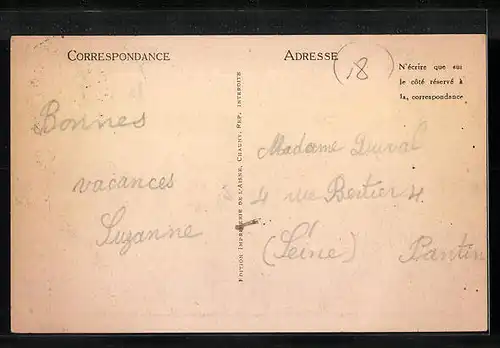 CORRESPONDANCE
Bonnes
vacances
Suzanne
EDITION IMPRIMERIE DE L'AISNE, CHAUNY, REP. INTERDITE
ADRESSE
18
N'écrire que sur
le côté réservé à
la, correspondance
Madame Duval
4 rue Bertier 4
(Seine) Pantin